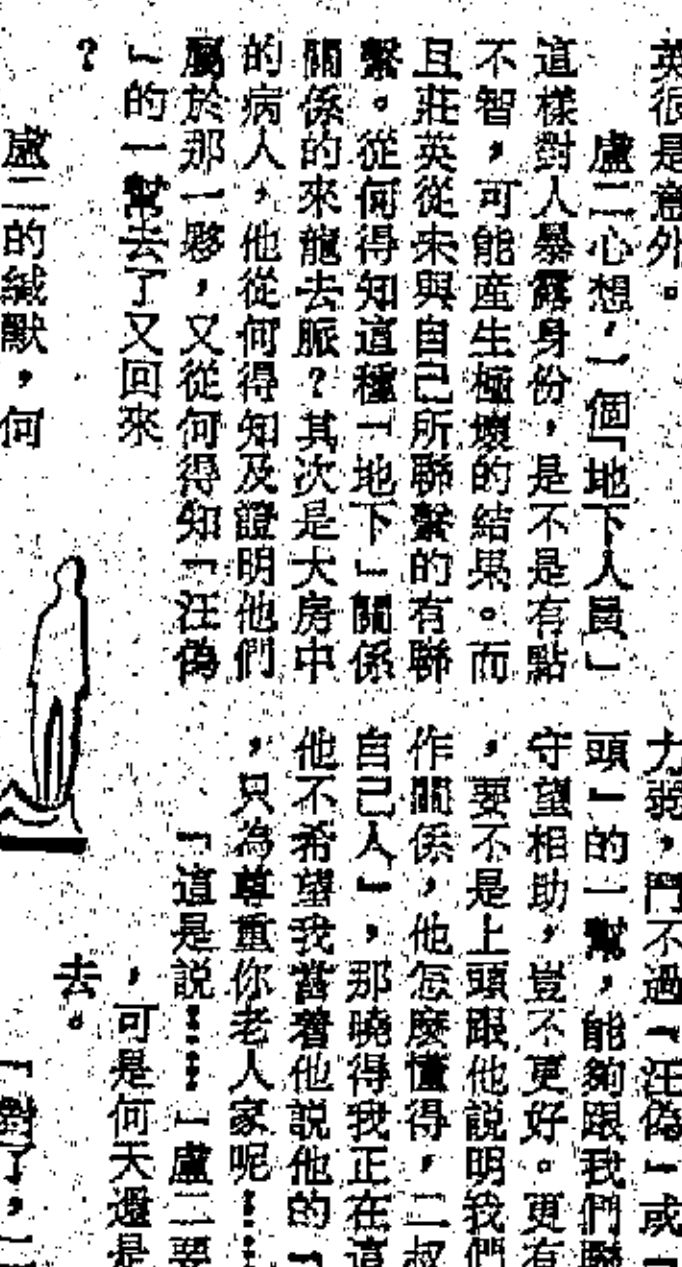 英很是意外。
盧二心想,一個「地下人員」
這樣對人暴露身份,是不是有點
不智,可能産生極壞的結果。而
且莊英從未與自己所聯繫的有聯
繫。從何得知這種「地下」關係
關係的來龍去脈?其次是大房中
的病人,他從何得知及證明他們
屬於那一夥,又從何得知「汪偽
」的一幫去了又回來
?
盧二的緘默,何
力弱,鬥不過「汪偽」或「
頭」的一幫,能夠跟我們聯
守望相助,豈不更好。更有
,要不是上頭跟他説明我們
作關係,他怎麼懂得,二叔
自己人」,那曉得我正在這
他不希望我當着他説他的「
,只為尊重你老人家呢……
「這是説……」盧二要
,可是何天還是
去。
「對了,二